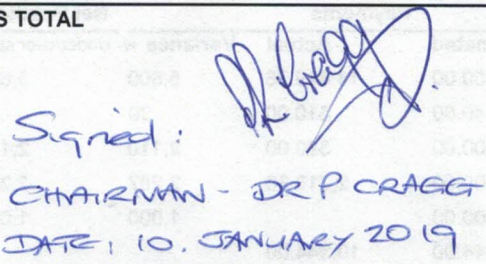 S TOTAL
Signed:
CHAIRMAN - DR P. CRAGG
DATE: 10. JANUARY 2019